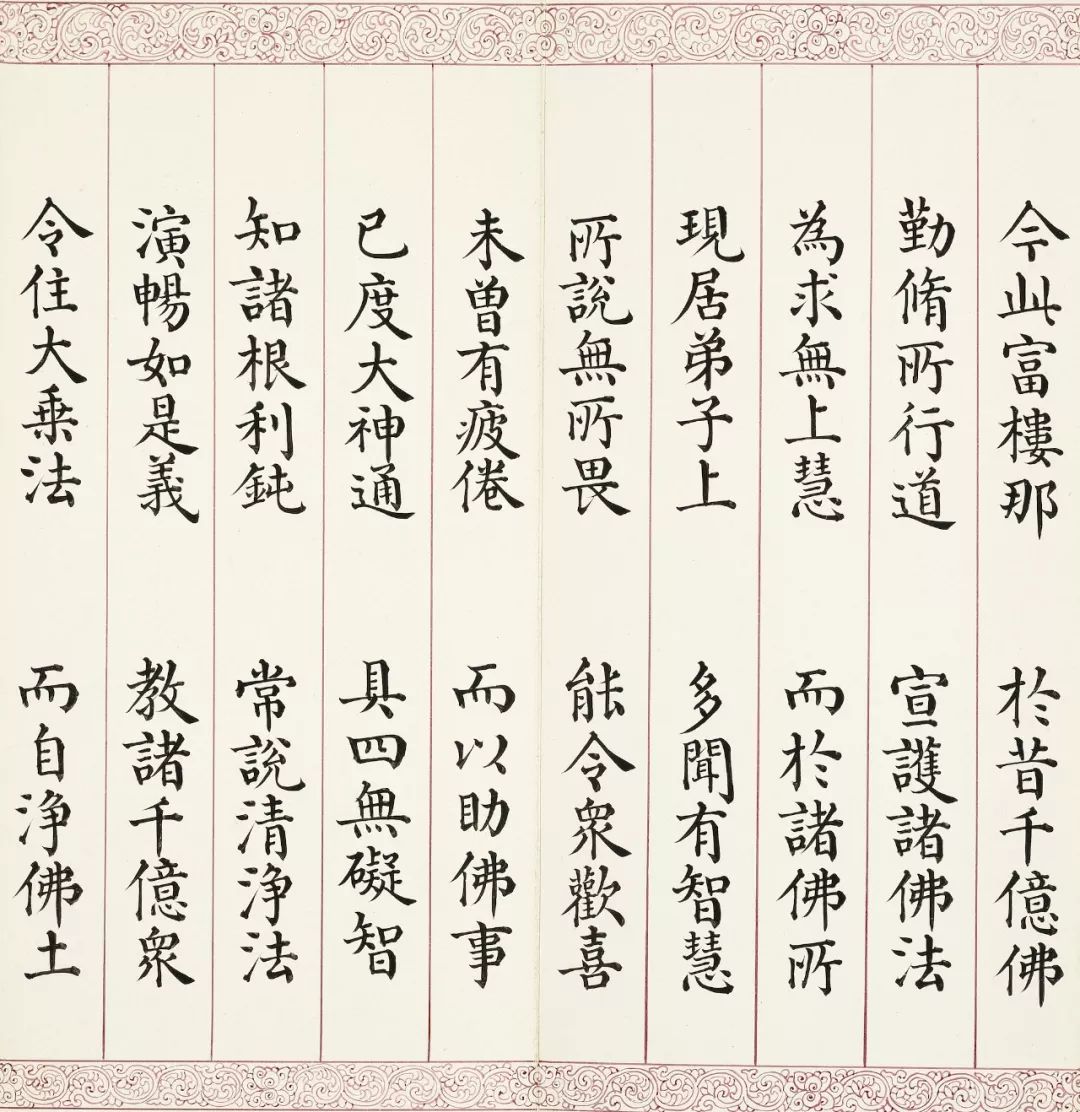 今此富樓那 於昔千億佛
勤脩所行道 宣護諸佛法
為求無上慧 而於諸佛所
現居弟子上 多聞有智慧
所說無所畏 能令眾歡喜
未曾有疲倦 而以助佛事
已度大神通 具四無礙智
知諸根利鈍 常說清淨法
演暢如是義 教諸千億眾
令住大乗法 而自淨佛土